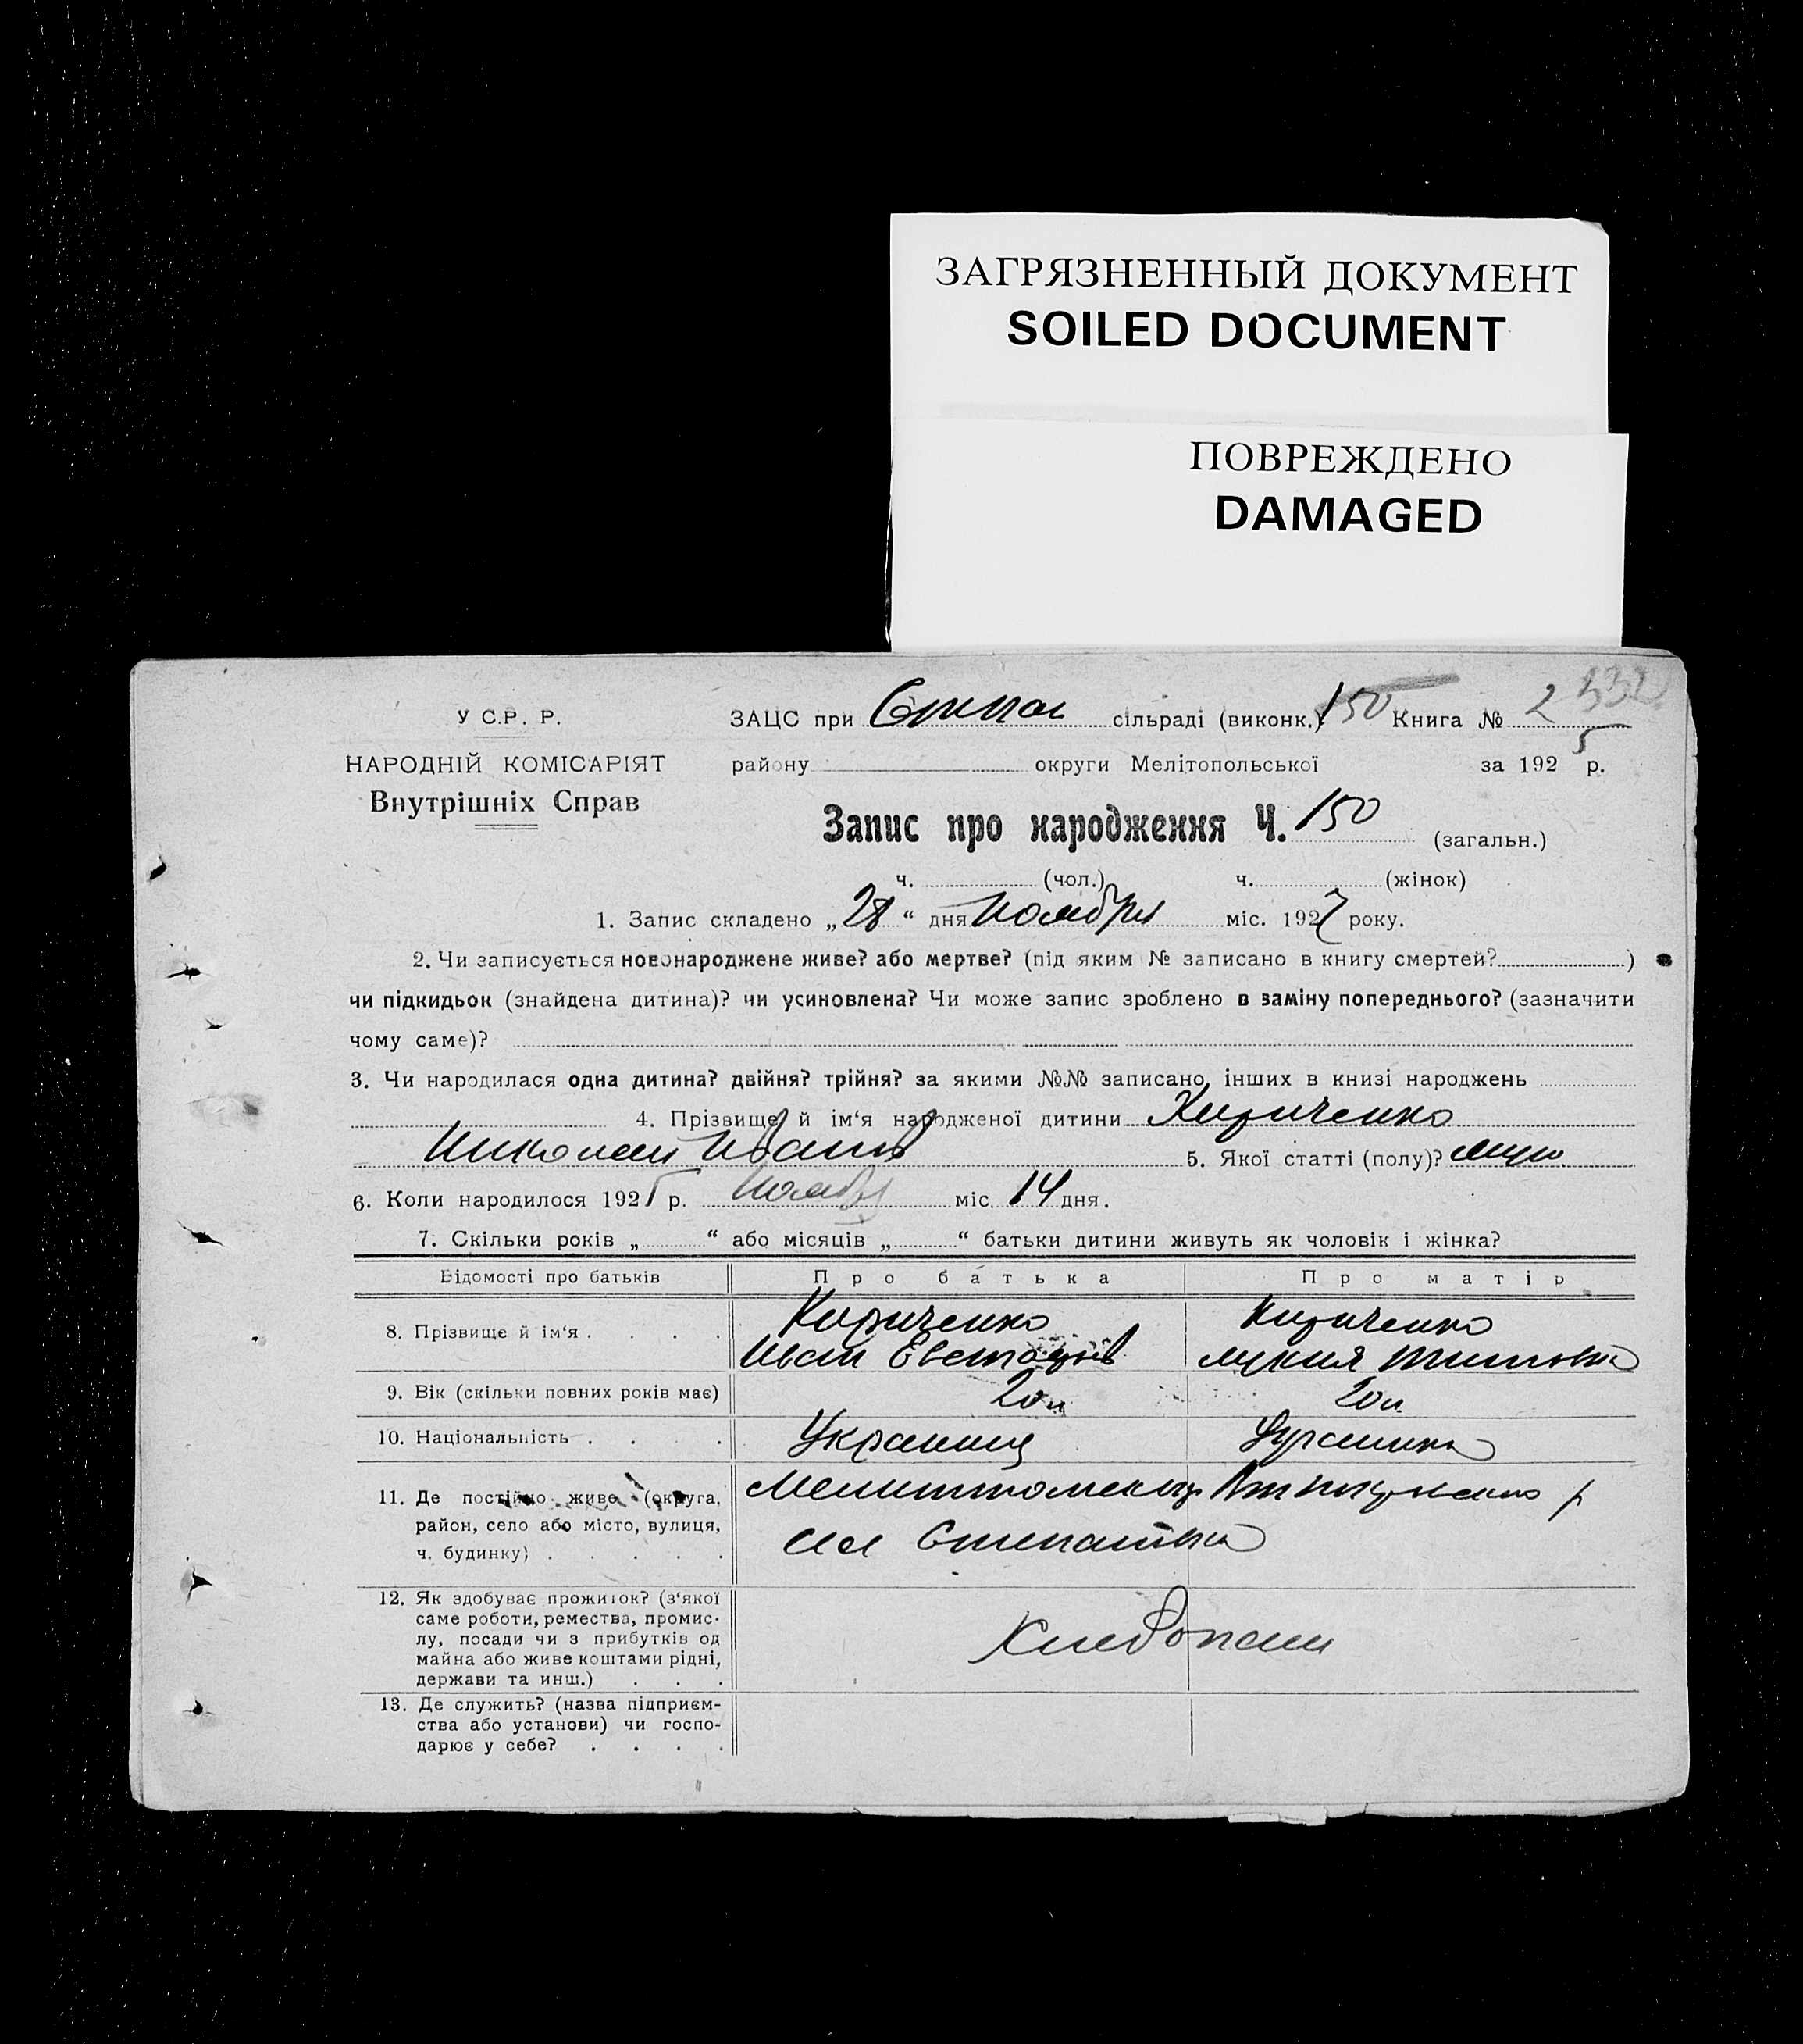 ЗАГРЯЗНЕННЫЙ ДОКУМЕНТ
SOILED DOCUMENT
ПОВРЕЖДЕНО
DAMAGED
332
У С.Р. Р.
ЗАЦС при сільраді (виконк.) 150 Книга № 2
НАРОДНІЙ КОМІСАРІЯТ
району округи Мелітопольської за 1925 р.
Внутрішніх Справ
Запис про народження Ч. 150 (загальн.)
ч. (чол.) ч. (жінок)
1. Запис складено „28“ дня Ноября міс. 192 року.
2. Чи записується новонароджене живе? або мертве? (під яким № записано в книгу смертей? )
чи підкидьок (знайдена дитина)? чи усиновлена? Чи може запис зроблено в заміну попереднього? (зазначити
чому саме)?
3. Чи народилася одна дитина? двійня? трійня? за якими №№ записано інших в книзі народжень
4. Прізвище й ім‘я народженої дитини Кириченко
Николай Иванов 5. Якої статті (полу)? муж.
6. Коли народилося 1925 р. Ноября міс. 14 дня.
7. Скільки років „ “ або місяців „ “ батьки дитини живуть як чоловік і жінка?
Відомості про батьків Про батька Про матір
8. Прізвище й ім‘я . . . . Кириченко Кириченко
Иван Лукия Титовна
9. Вік (скільки повних років має) 20 л 20 л
10. Національність . . . . Украинец
11. Де постійно живе (округа,
район, село або місто, вулиця,
ч. будинку) . . . . .
12. Як здобуває прожиток? (з‘якої
саме роботи, ремества, промис-
лу, посади чи з прибутків од
майна або живе коштами рідні,
держави та инш.) . . .
Хлебопаш
13. Де служить? (назва підприєм-
ства або установи) чи госпо-
дарює у себе? . . . .